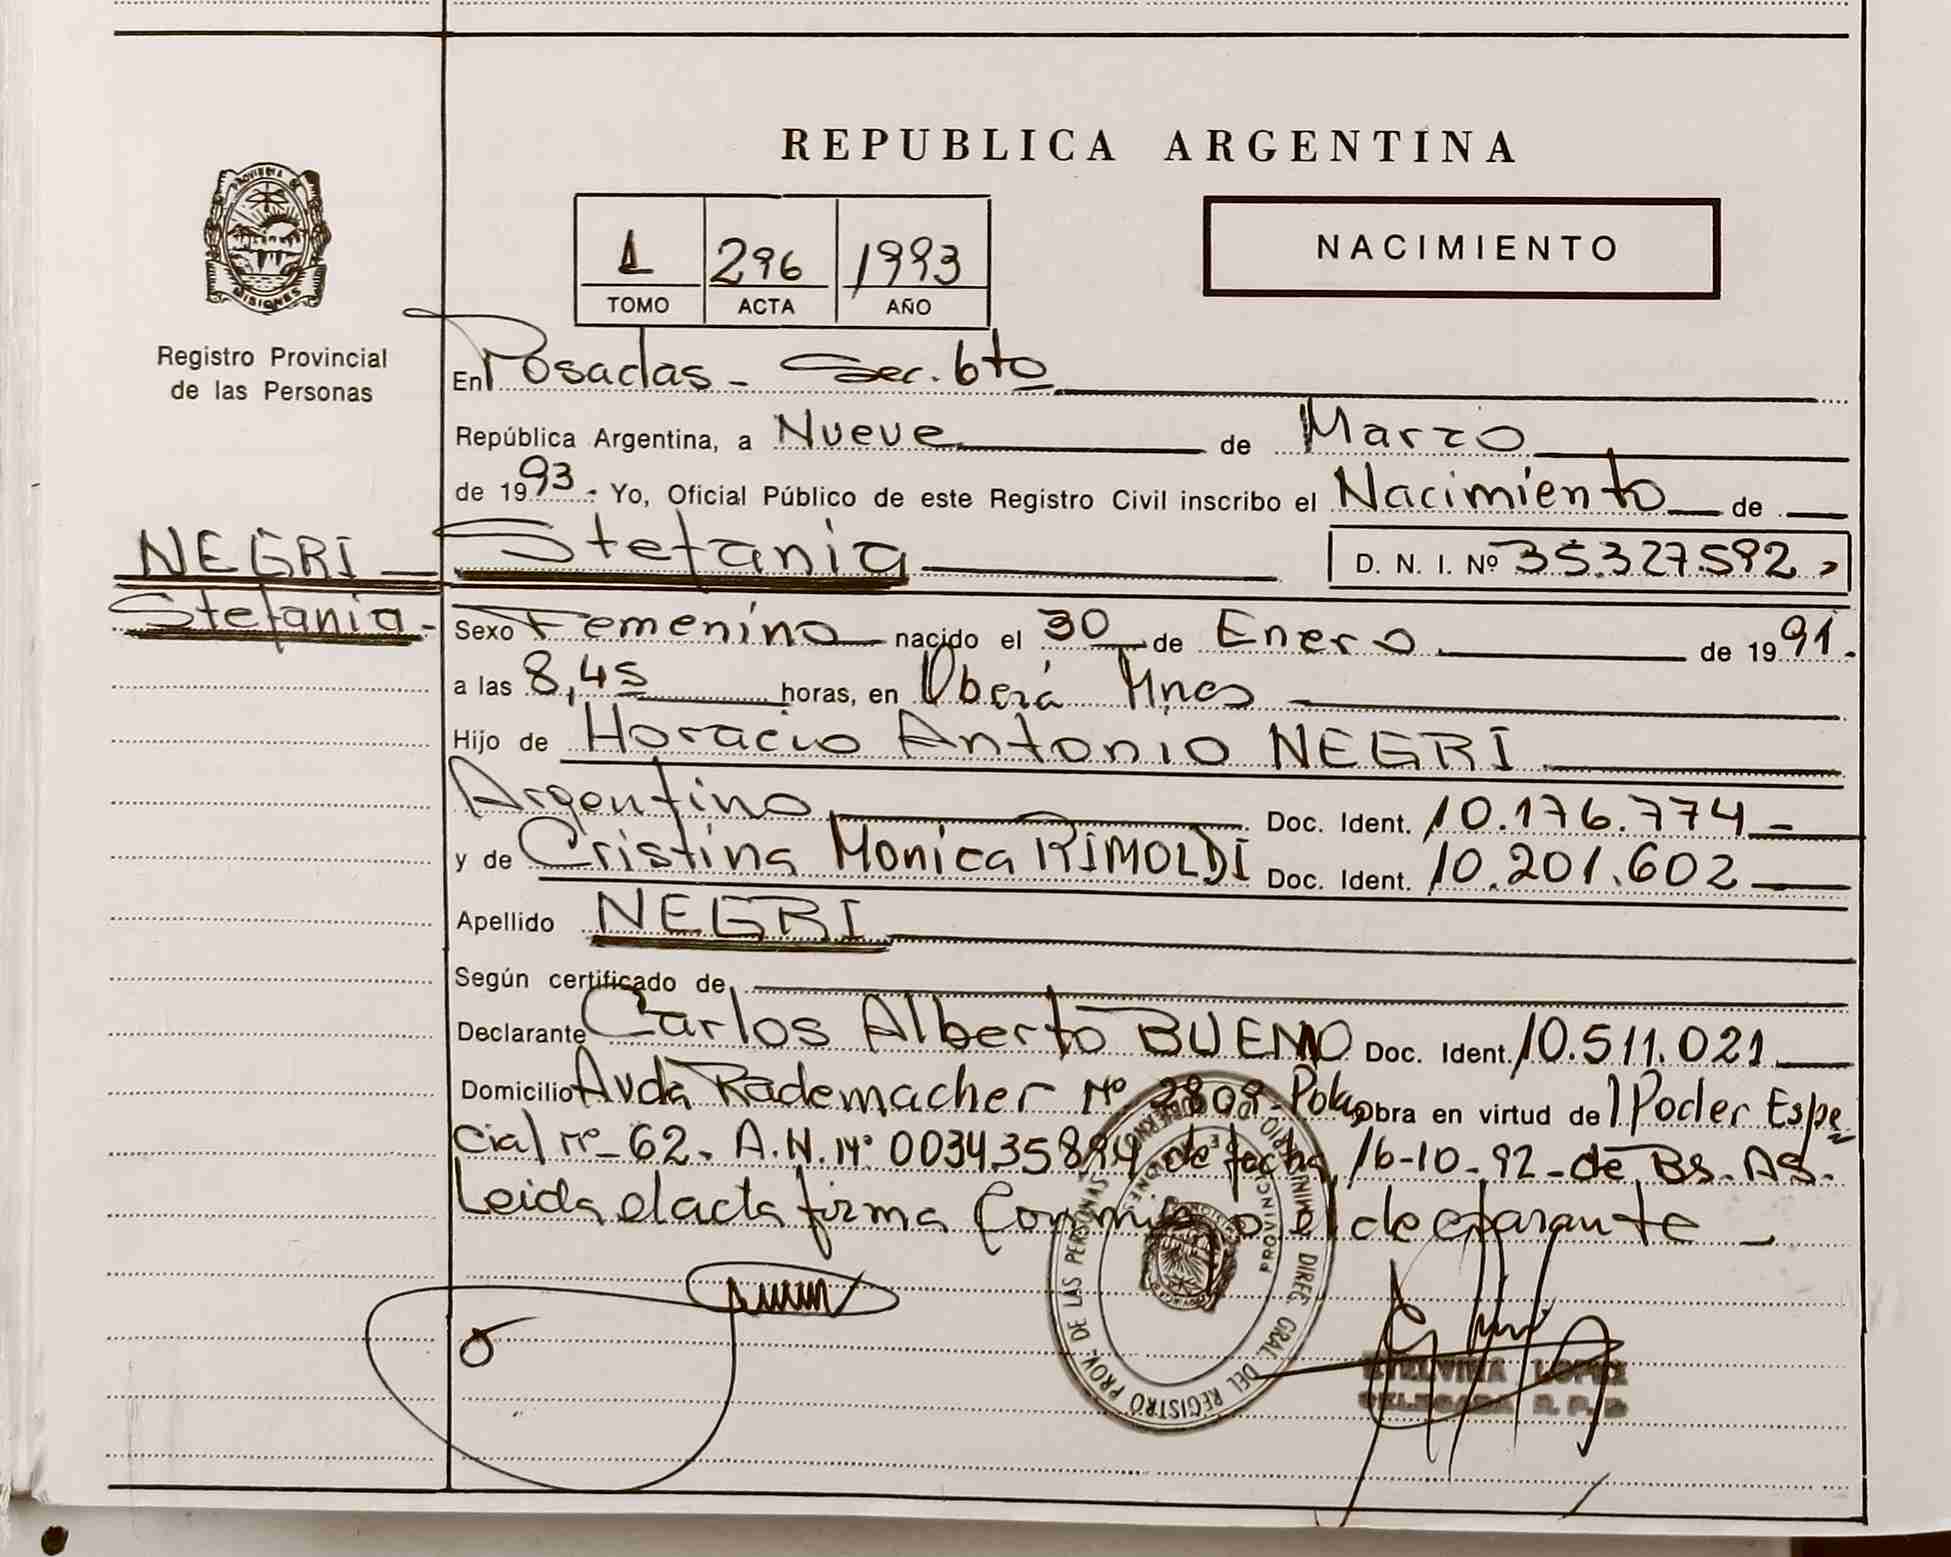 REPUBLICA ARGENTINA
PROVINCIA DE
MISIONES
Registro Provincial
de las Personas
1 296 1993
TOMO ACTA AÑO
NACIMIENTO
En Posadas - Sec. 6to
República Argentina, a Nueve de Marzo
de 1993.- Yo, Oficial Público de este Registro Civil inscribo el Nacimiento de
NEGRI
Stefania.-
Stefania D. N. I. Nº 35.327.592.-
Sexo Femenino nacido el 30 de Enero de 1991.
a las 8,45 horas, en Oberá Mnes
Hijo de Horacio Antonio NEGRI
Argentino Doc. Ident. 10.176.774
y de Cristina Monica RIMOLDI Doc. Ident. 10.201.602
Apellido NEGRI
Según certificado de
Declarante Carlos Alberto BUENO Doc. Ident. 10.511.021
Domicilio Avda Rademacher Nº 2809 - Obra en virtud de 1 Poder Espe
cial nº 62. A.N. Nº 003435894 de fecha 16-10-92 - de BS. AS.
Leida el acta firma Conmigo el declarante
DIREC. GRAL. DEL REGISTRO PROV. DE LAS PERSONAS
PROVINCIA DE MISIONES
ETELVINA LOPEZ
DELEGADA R. P. P.